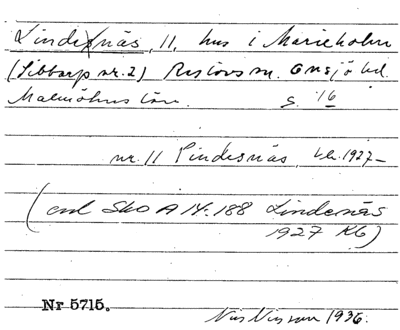 Lindesnäs, 11, hus i Marieholm
(Sibbarp nr. 2) Reslövs sn. Onsjö hd.
Malmöhus län. s. 16
nr. 11 Lindesnäs, kb. 1927–
(enl SkO A 14:188 Lindernäs
1927 Kb)
Nr 5715.
Nils Nilsson 1936.